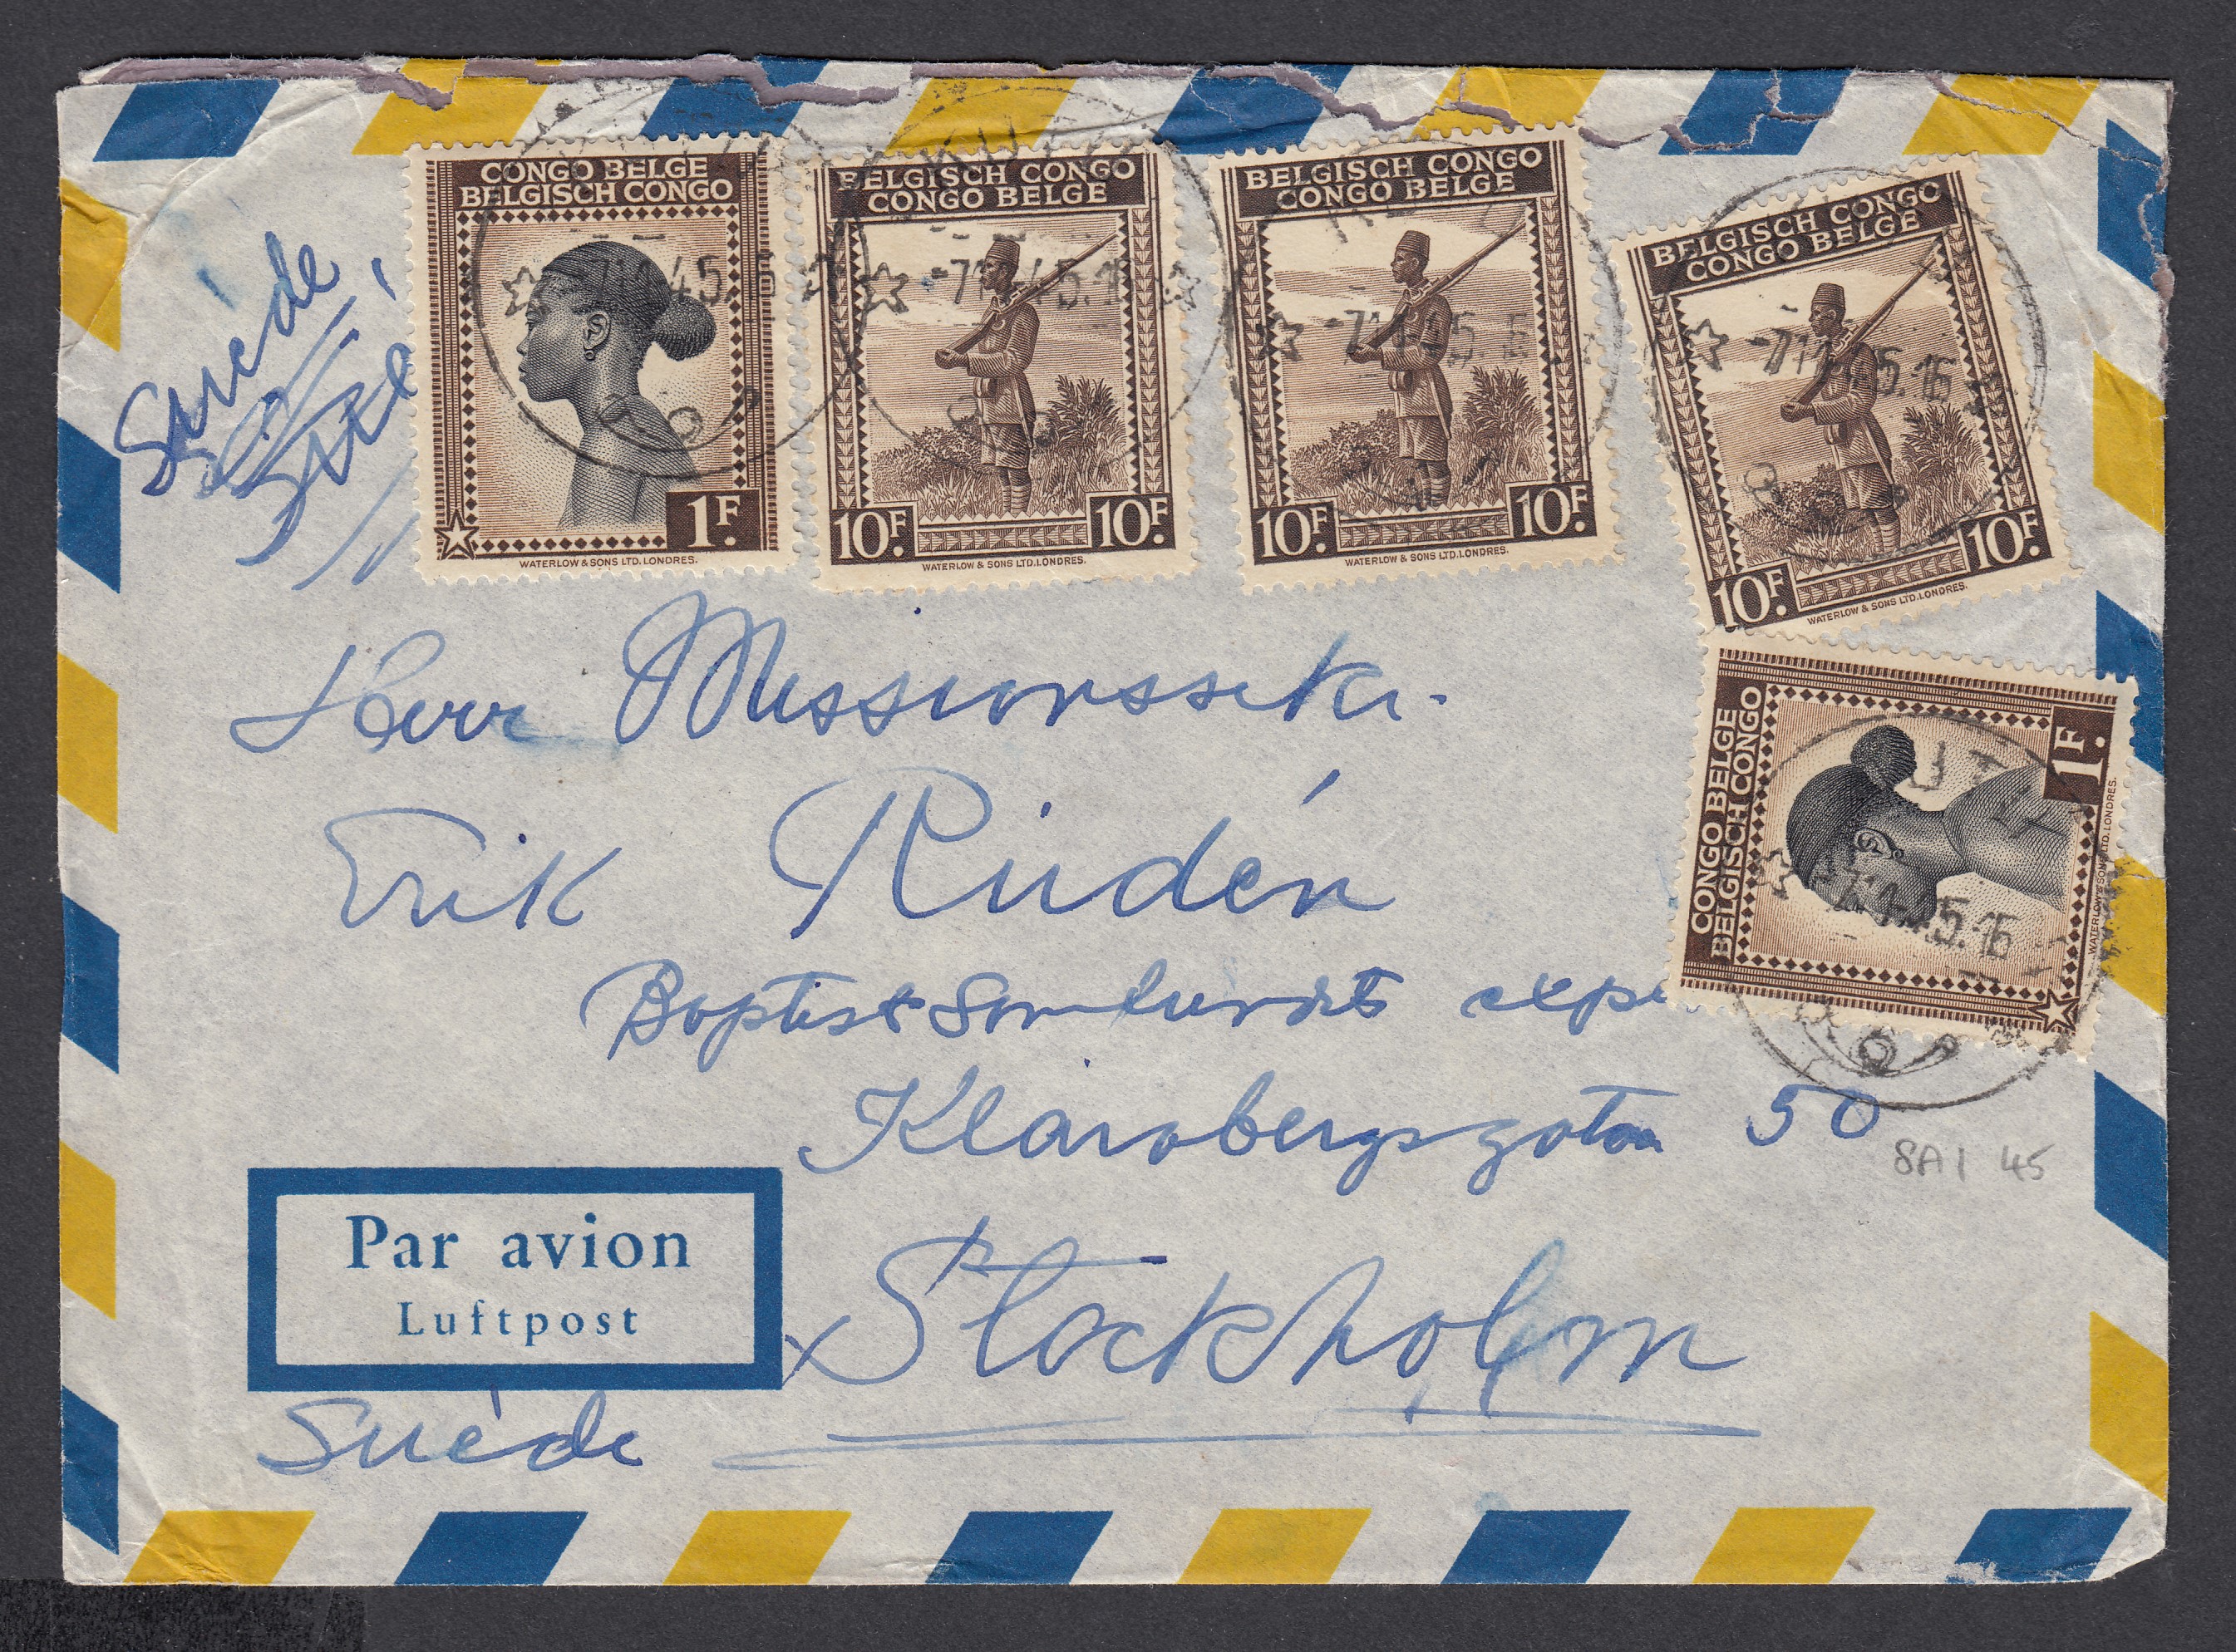 CONGO BELGE
BELGISCH CONGO
1F.
WATERLOW & SONS LTD. LONDRES.
BELGISCH CONGO
CONGO BELGE
10F. 10F.
WATERLOW & SONS LTD. LONDRES.
BELGISCH CONGO
CONGO BELGE
10F. 10F.
WATERLOW & SONS LTD. LONDRES.
BELGISCH CONGO
CONGO BELGE
10F. 10F.
WATERLOW & SONS LTD. LONDRES.
CONGO BELGE
BELGISCH CONGO
1F.
WATERLOW & SONS LTD. LONDRES.
Suède
Herr Missionssekr.
Erik Rudén
Baptistsamfundets exp
Klarabergsgatan 50
8A1 45
Stockholm
Par avion
Luftpost
Suède